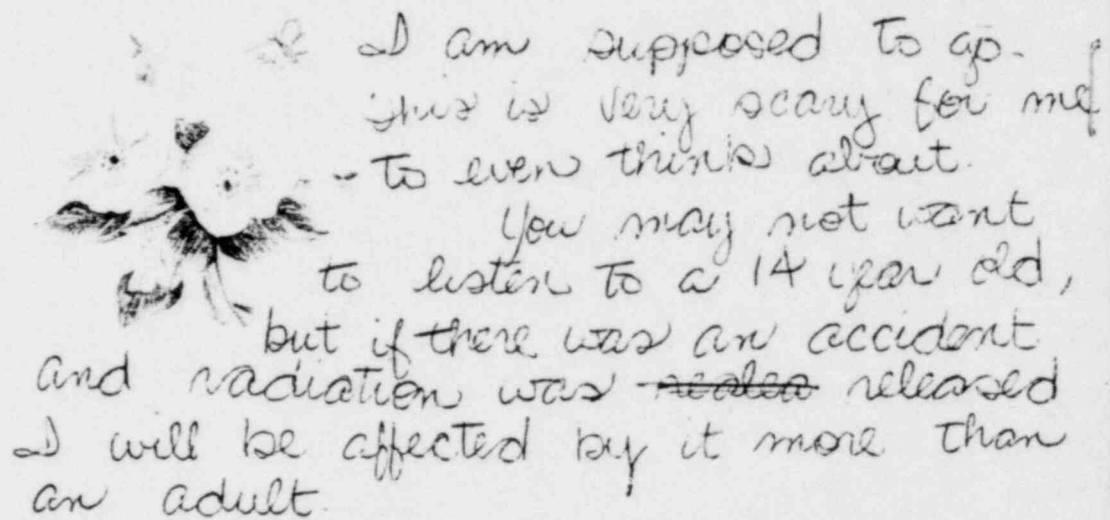 I am supposed to go.
This is very scary for me
to even think about.
You may not want
to listen to a 14 year old,
but if there was an accident
and radiation was released
I will be affected by it more than
an adult.